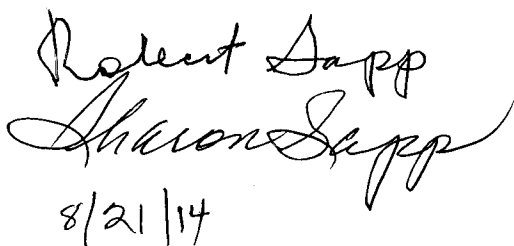 Robert Sapp
Sharon Sapp
8/21/14